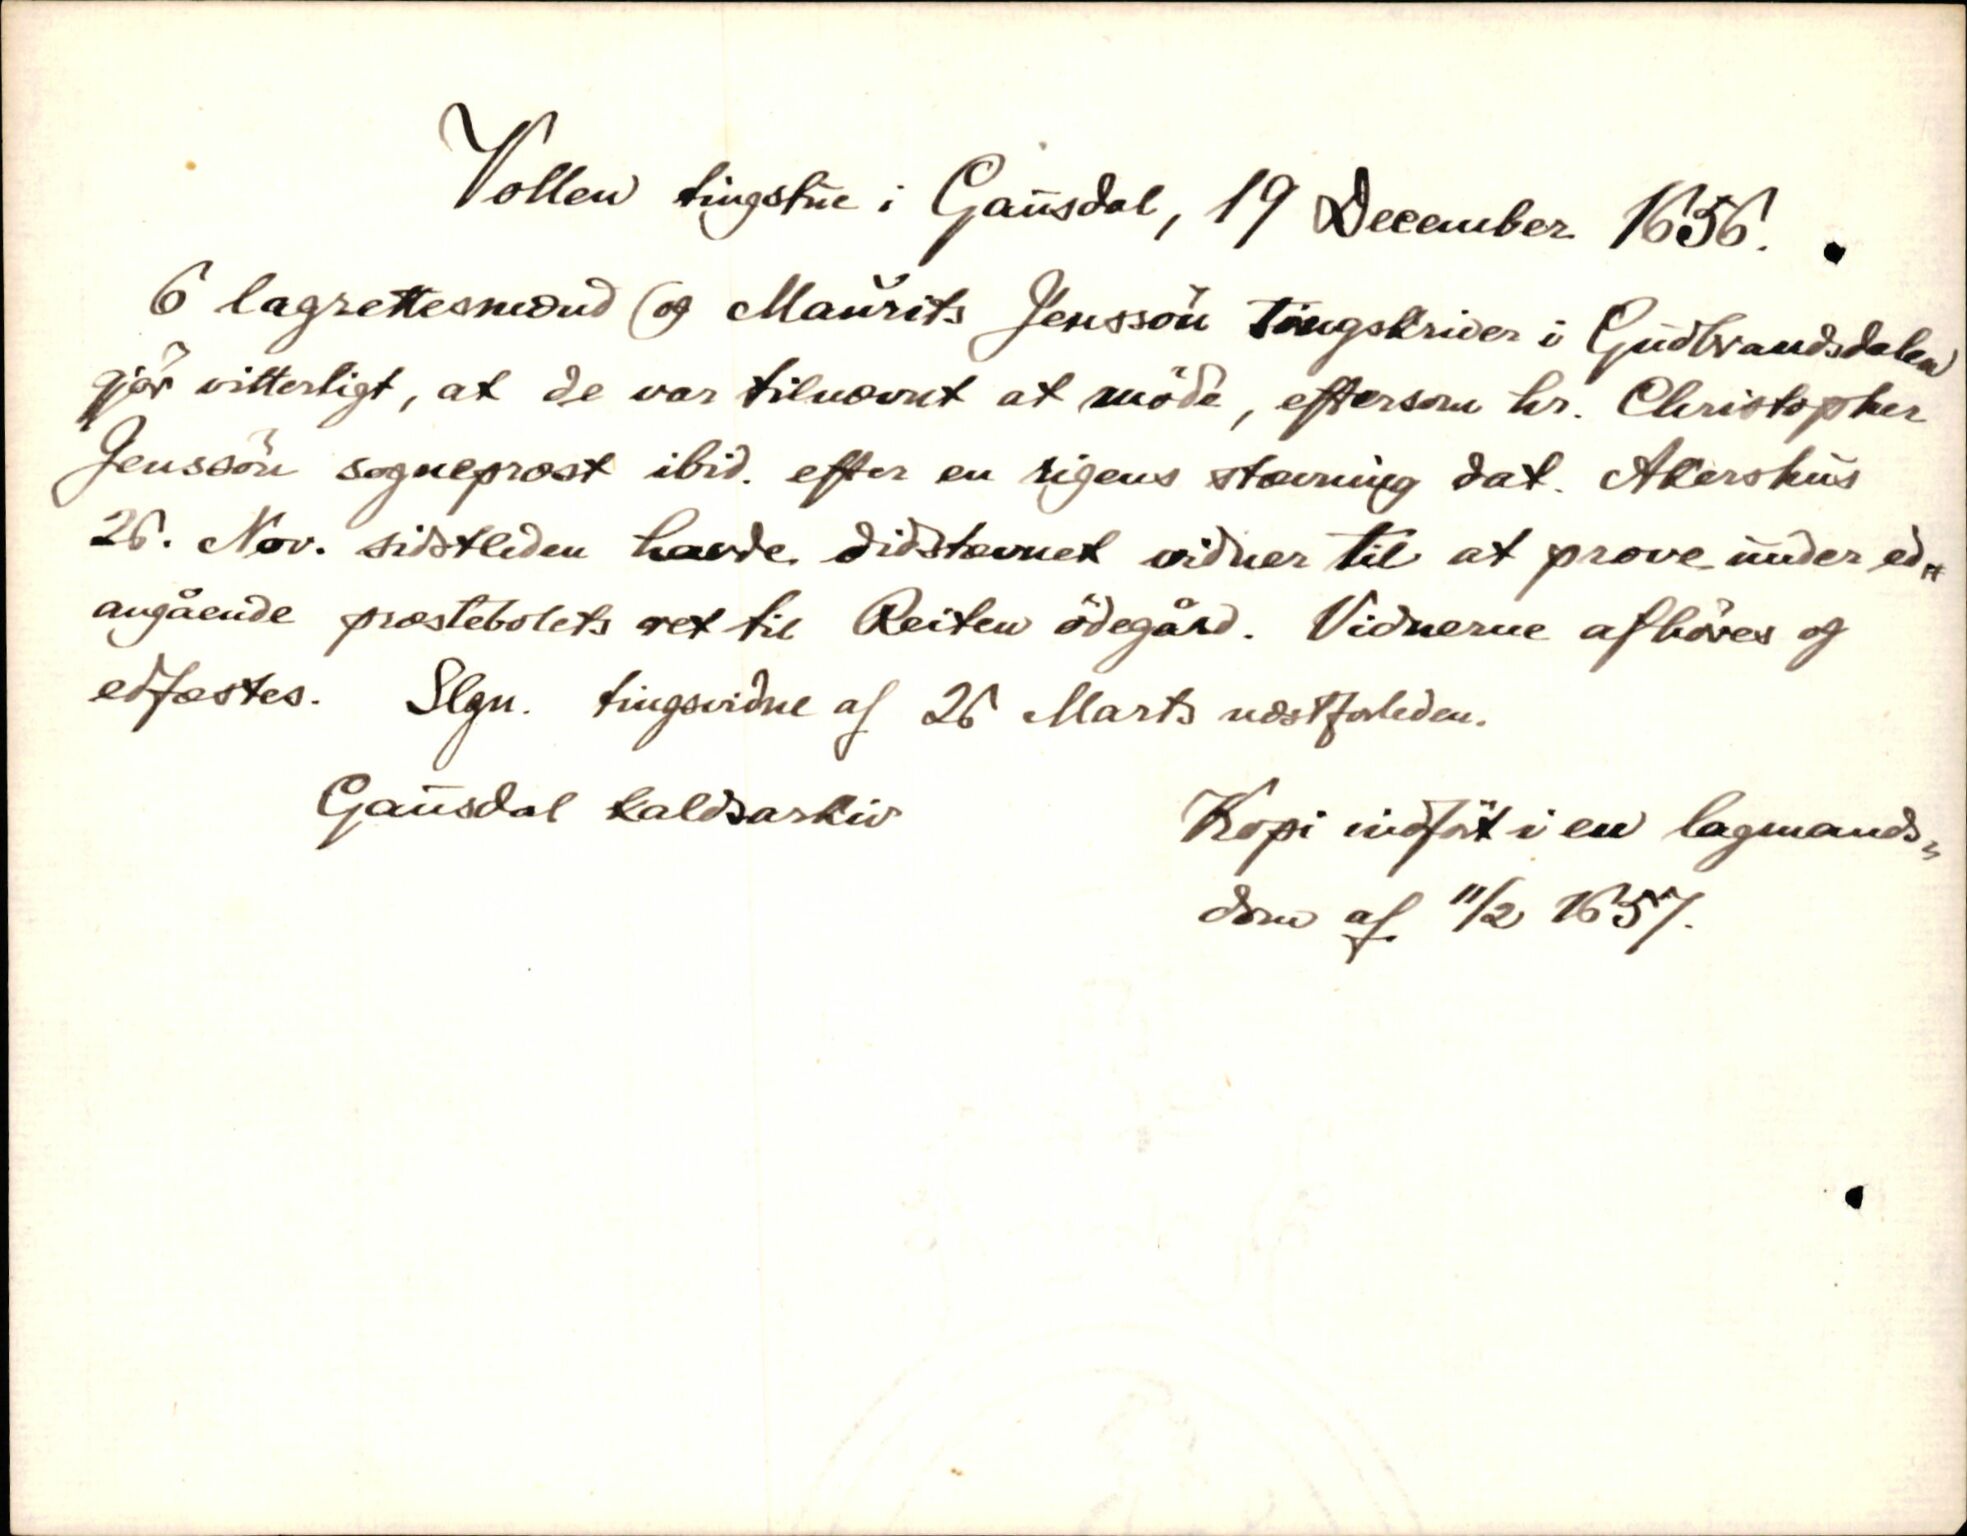 Vollen tingstue i Gausdal, 19 December 1656.
6 lagrettesmænd (og Maurits Jenssön Tingskriver i Gudbrandsdalen
gjør vitterligt, at de var tilnævnt at möde, eftersom hr. Christopher
Jenssön sogneprest ibid. efter en rigens stævning dat. Akershus
26. Nov. sidstleden havde didstævnet vidner til at prove under ed„
angående præstebolets ret til Reiten ödegård. Vidnerne afhöres og
edfæstes. Slgn. tingsvidne af 26 Marts næstforleden.
Gausdal kaldsarkiv
Kopi indført i en lagmands„
dom af 11/2 1657.